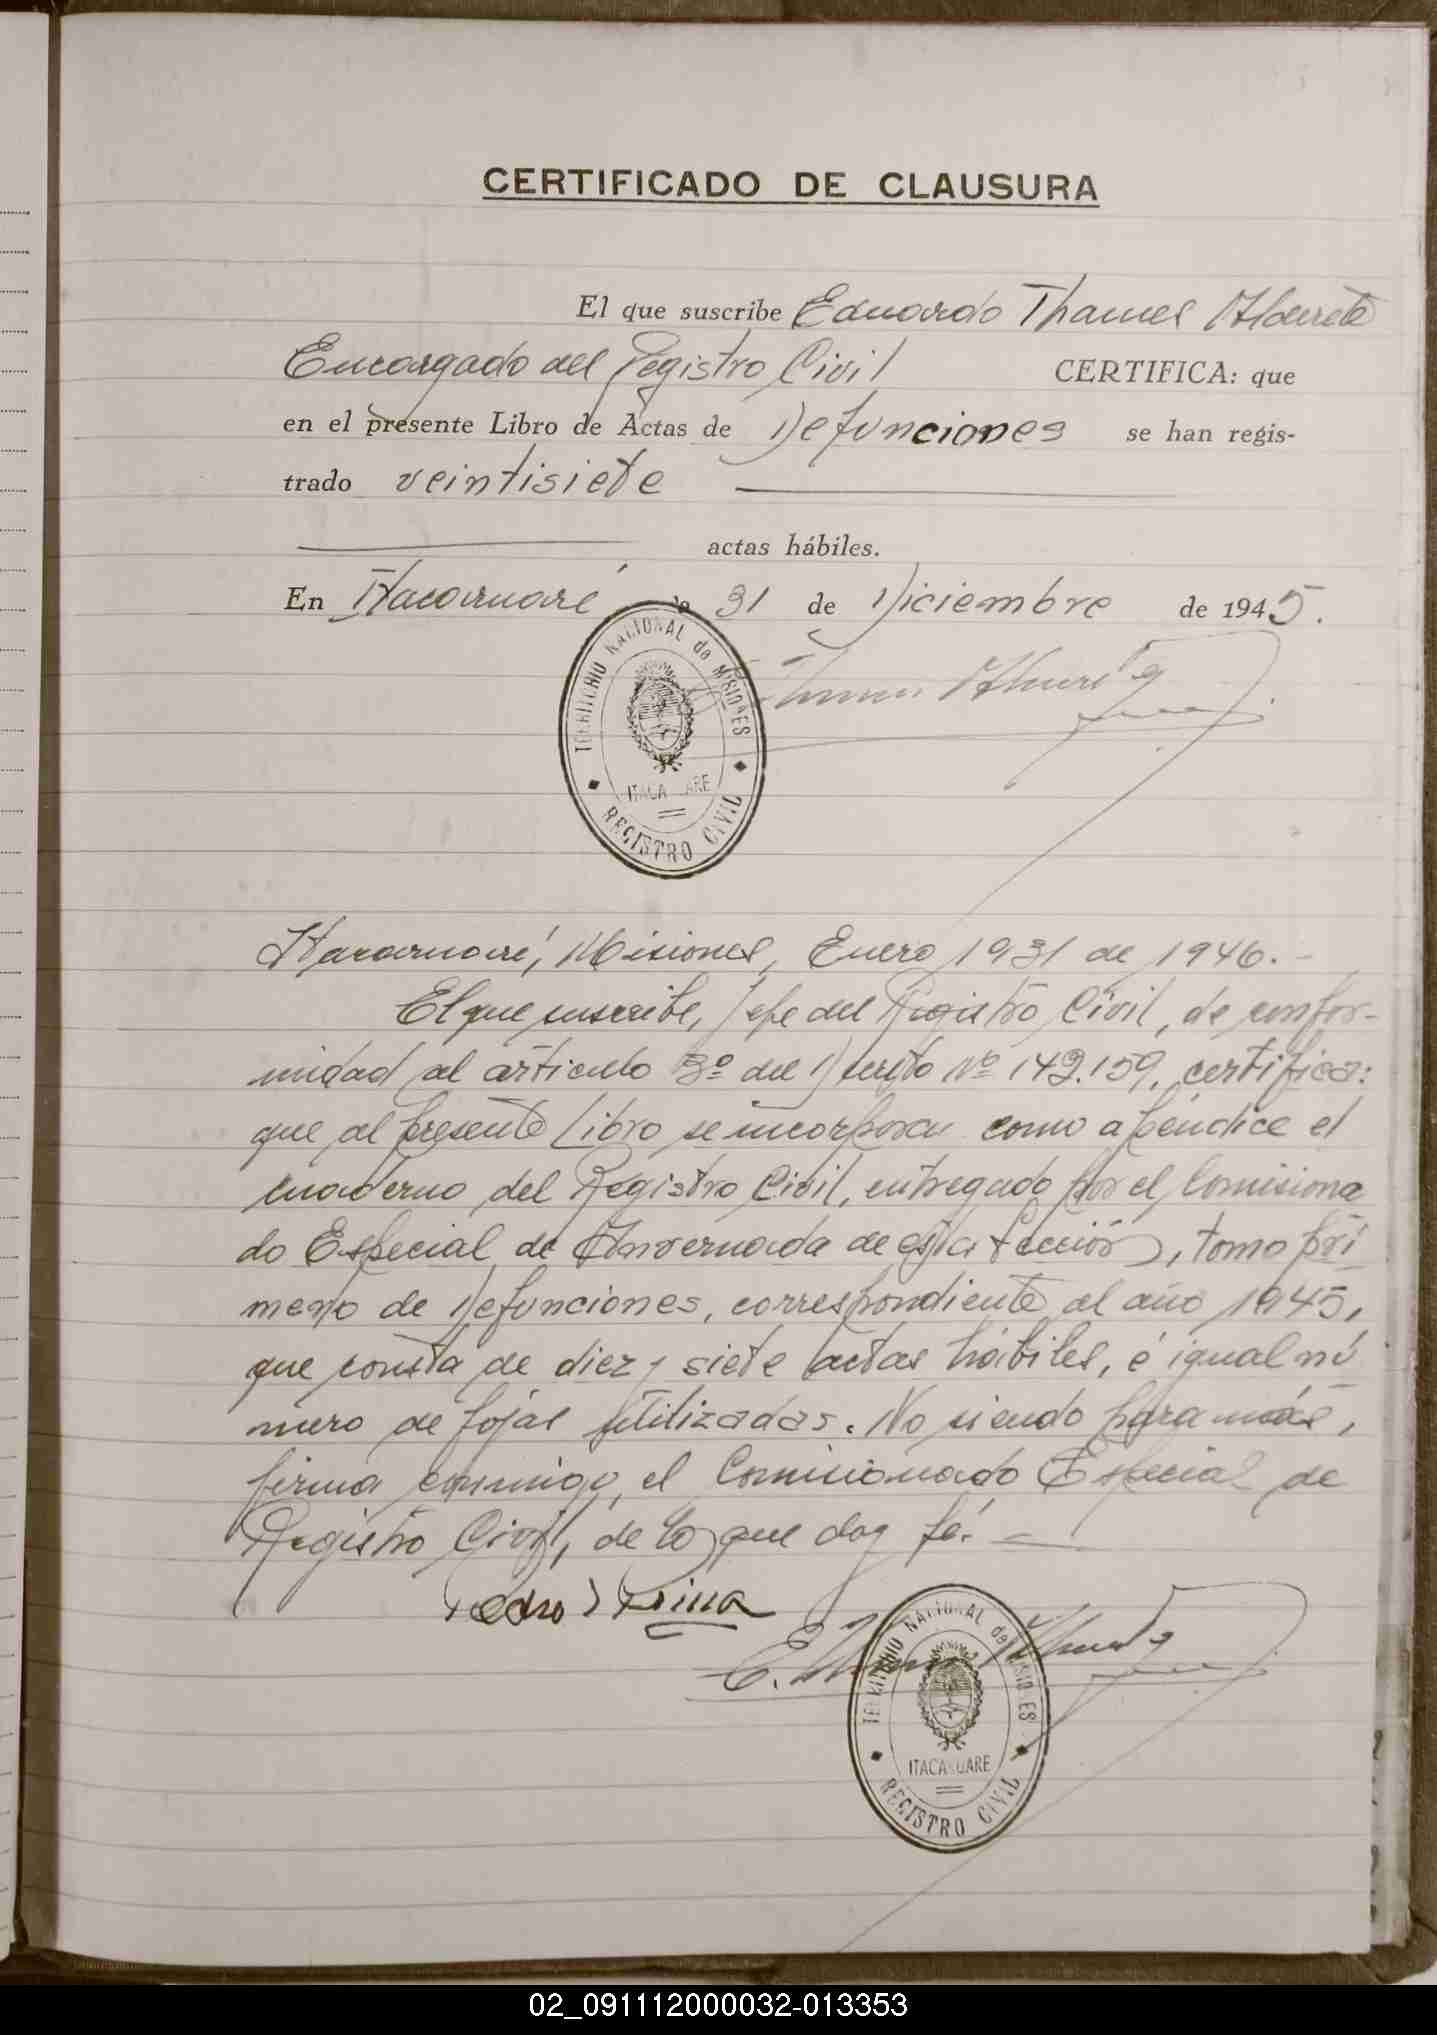 CERTIFICADO DE CLAUSURA
El que suscribe Eduardo Thames Alderete
Encargado del Registro Civil CERTIFICA: que
en el presente Libro de Actas de Defunciones se han regis-
trado veintisiete
actas hábiles.
En Itacaruaré 31 de Diciembre de 1945.
TERRITORIO NACIONAL de MISIONES
ITACA ARE
REGISTRO CIVIL
Itacaruaré, Misiones, Enero 1931 de 1946.-
El que suscribe, Jefe del Registro Civil, de confor-
midad al artículo 3º del Decreto Nº 142.159, certifica:
que al presente Libro se incorpora como apéndice el
cuaderno del Registro Civil, entregado por el Comisiona
do Especial de de esta Sección, tomo pri
mero de Defunciones, correspondiente al año 1945,
que consta de diez y siete actas hábiles, é igual nú
mero de fojas utilizadas. No siendo para más,
firma conmigo, el Comisionado Especial de
Registro Civil, de lo que doy fé.-
Pedro
E. Thames Alderete
TERRITORIO NACIONAL de MISIONES
ITACARUARE
REGISTRO CIVIL
02_091112000032-013353